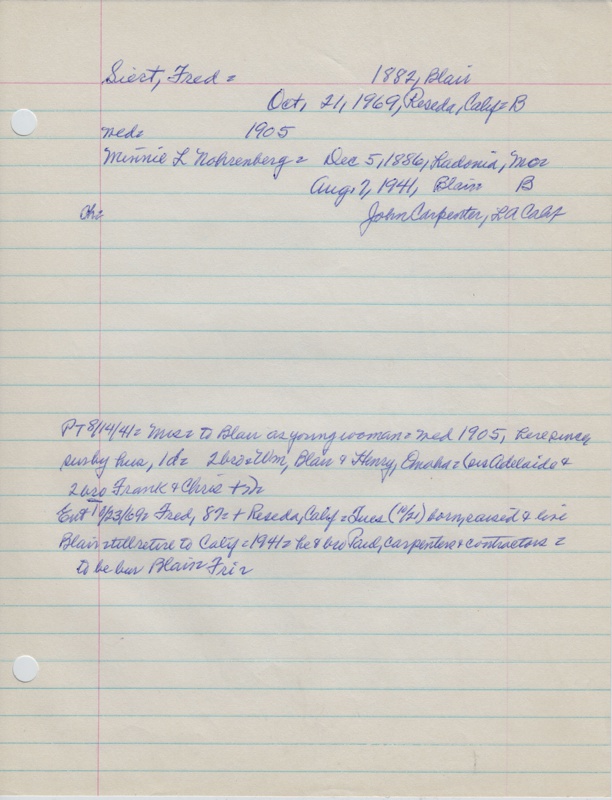 Siert, Fred = 1882, Blair
Oct, 21, 1969, Reseda, Calif = B
Wed = 1905
Minnie L Nohrenberg = Dec 5, 1886, Ladonia, Mo =
Aug. 7, 1941, Blair B
Ch = John Carpenter, LA Calif
PT 8/14/41 = Mrs = to Blair as young woman = wed 1905, here since
surby hus, 1d = 2bro = Wm, Blair & Henry, Omaha = Adelaide &
2bro Frank & Chris +
Ent 10/23/69 = Fred, 87 = + Reseda, Calif = Tues (10/21) born, raised & live
Blair till retire to Calif = 1941 = he & bro Paul, carpenters & contractors =
to be bur Blair Fri =